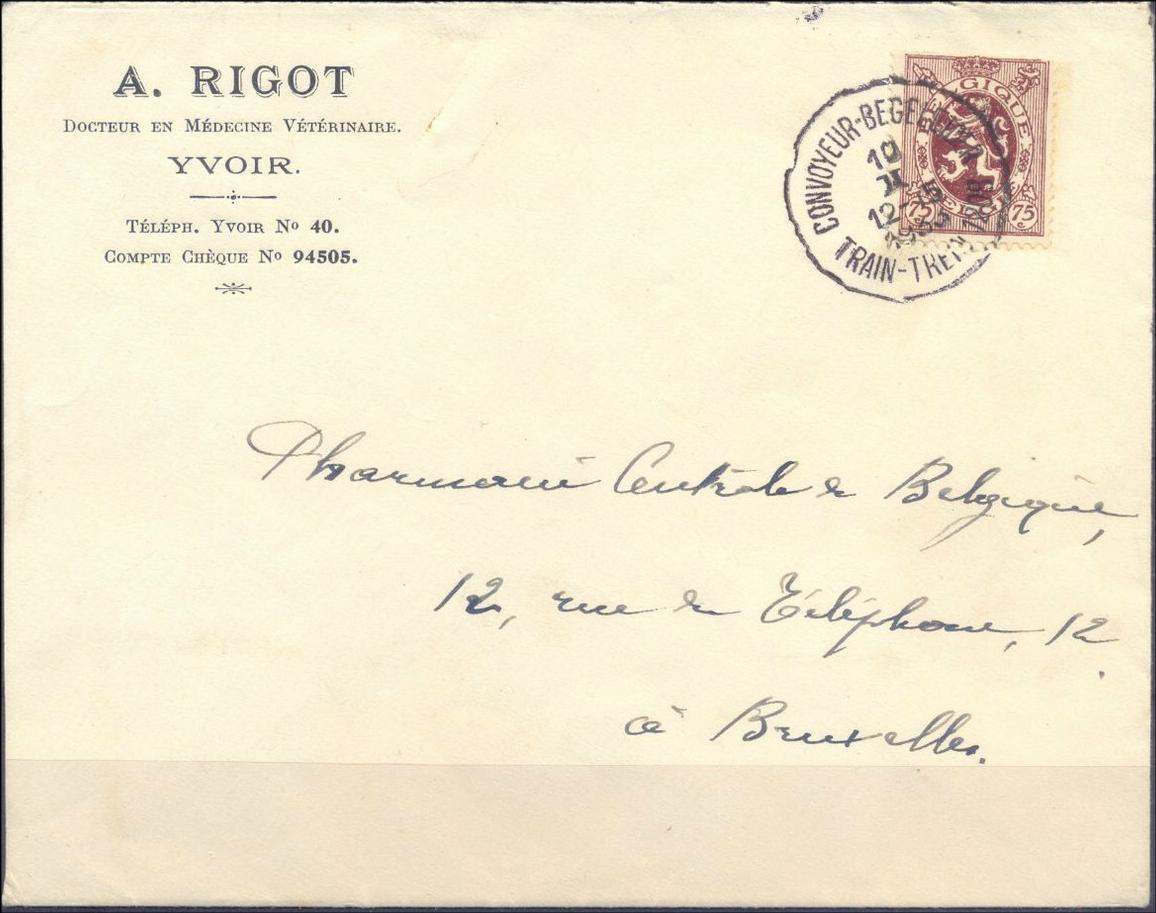 A. RIGOT
DOCTEUR EN MÉDECINE VÉTÉRINAIRE.
YVOIR.
TÉLÉPH. YVOIR Nº 40.
COMPTE CHÈQUE Nº 94505.
CONVOYEUR-BEGELEIDER
12
TRAIN-TREIN
BELGIQUE
75 75
Pharmacie Centrale de Belgique,
12, rue du Téléphone, 12.
à Bruxelles.